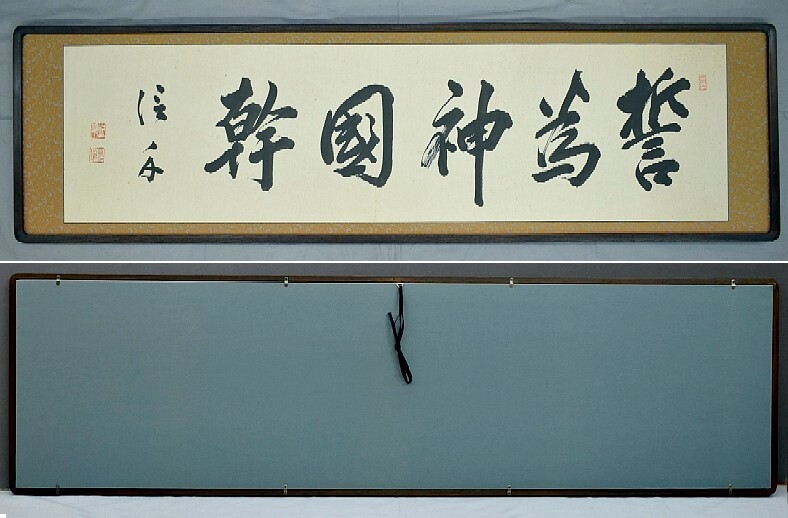 誓為神國幹